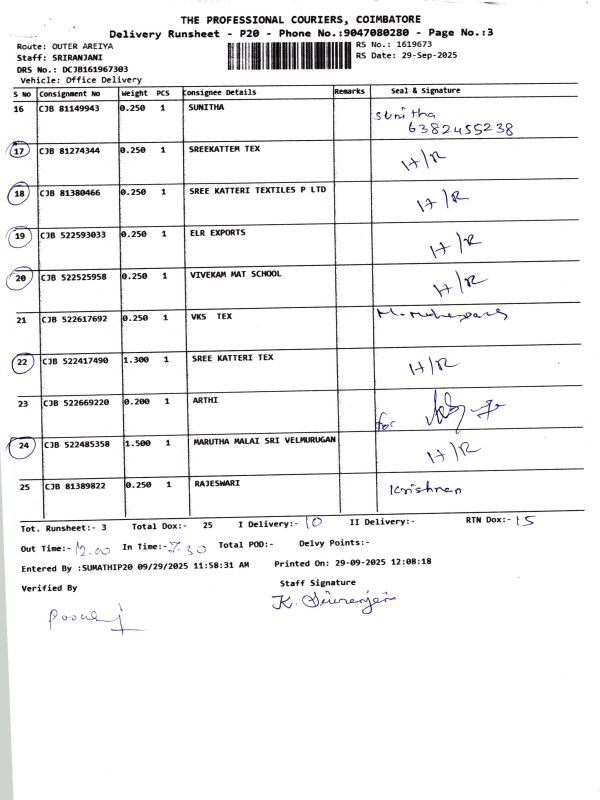 THE PROFESSIONAL COURIERS, COIMBATORE
Delivery Runsheet - P20 - Phone No.:9047080280 - Page No.:3
Route: OUTER AREIYA RS No.: 1619673
Staff: SRIRANJANI RS Date: 29-Sep-2025
DRS No.: DCJB161967303
Vehicle: Office Delivery
S No Consignment No Weight PCS Consignee Details Remarks Seal & Signature
16 CJB 81149943 0.250 1 SUNITHA Sunitha
6382455238
17 CJB 81274344 0.250 1 SREEKATTEM TEX H/R
18 CJB 81380466 0.250 1 SREE KATTERI TEXTILES P LTD H/R
19 CJB 522593033 0.250 1 ELR EXPORTS H/R
20 CJB 522525958 0.250 1 VIVEKAM MAT SCHOOL H/R
21 CJB 522617692 0.250 1 VKS TEX
22 CJB 522417490 1.300 1 SREE KATTERI TEX H/R
23 CJB 522669220 0.200 1 ARTHI for
24 CJB 522485358 1.500 1 MARUTHA MALAI SRI VELMURUGAN H/R
25 CJB 81389822 0.250 1 RAJESWARI Krishnan
Tot. Runsheet:- 3 Total Dox:- 25 I Delivery:- 10 II Delivery:- RTN Dox:- 15
Out Time:- 12.00 In Time:- 7.30 Total POD:- Delvy Points:-
Entered By :SUMATHIP20 09/29/2025 11:58:31 AM Printed On: 29-09-2025 12:08:18
Verified By Staff Signature